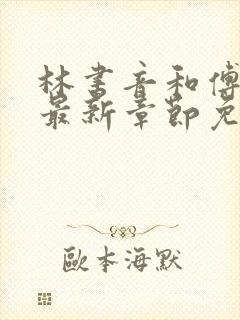 林书音和傅
最新章节免
歐本海默